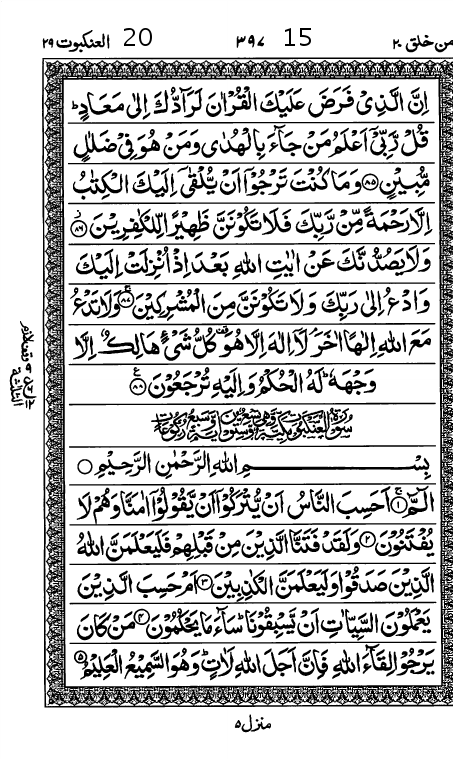 العنكبوت ٢٩ 20 ٣٩٧ 15 من خلق ٢٠
اِنَّ الَّذِىْ فَرَضَ عَلَيْكَ الْقُرْاٰنَ لَرَآدُّكَ اِلٰى مَعَادٍؕ
قُلْ رَّبِّىْٓ اَعْلَمُ مَنْ جَآءَ بِالْهُدٰى وَمَنْ هُوَ فِىْ ضَلٰلٍ
مُّبِيْنٍ ﴿۸۵﴾ وَمَا كُنْتَ تَرْجُوْٓا اَنْ يُّلْقٰٓى اِلَيْكَ الْكِتٰبُ
اِلَّا رَحْمَةً مِّنْ رَّبِّكَ فَلَا تَكُوْنَنَّ ظَهِيْرًا لِّلْكٰفِرِيْنَ ﴿۸۶﴾
وَلَا يَصُدُّنَّكَ عَنْ اٰيٰتِ اللّٰهِ بَعْدَ اِذْ اُنْزِلَتْ اِلَيْكَ
وَادْعُ اِلٰى رَبِّكَ وَلَا تَكُوْنَنَّ مِنَ الْمُشْرِكِيْنَ ﴿۸۷﴾ وَلَا تَدْعُ
مَعَ اللّٰهِ اِلٰهًا اٰخَرَۘ لَآ اِلٰهَ اِلَّا هُوَࣞ كُلُّ شَىْءٍ هَالِكٌ اِلَّا
وَجْهَهٗؕ لَهُ الْحُكْمُ وَاِلَيْهِ تُرْجَعُوْنَ ﴿۸۸﴾
بِسْمِ اللّٰهِ الرَّحْمٰنِ الرَّحِيْمِ
الٓمّٓ ﴿۱﴾ اَحَسِبَ النَّاسُ اَنْ يُّتْرَكُوْٓا اَنْ يَّقُوْلُوْٓا اٰمَنَّا وَهُمْ لَا
يُفْتَنُوْنَ ﴿۲﴾ وَلَقَدْ فَتَنَّا الَّذِيْنَ مِنْ قَبْلِهِمْ فَلَيَعْلَمَنَّ اللّٰهُ
الَّذِيْنَ صَدَقُوْا وَلَيَعْلَمَنَّ الْكٰذِبِيْنَ ﴿۳﴾ اَمْ حَسِبَ الَّذِيْنَ
يَعْمَلُوْنَ السَّيِّاٰتِ اَنْ يَّسْبِقُوْنَاؕ سَآءَ مَا يَحْكُمُوْنَ ﴿۴﴾ مَنْ كَانَ
يَرْجُوْا لِقَآءَ اللّٰهِ فَاِنَّ اَجَلَ اللّٰهِ لَاٰتٍؕ وَهُوَ السَّمِيْعُ الْعَلِيْمُ ﴿۵﴾
منزل ٥